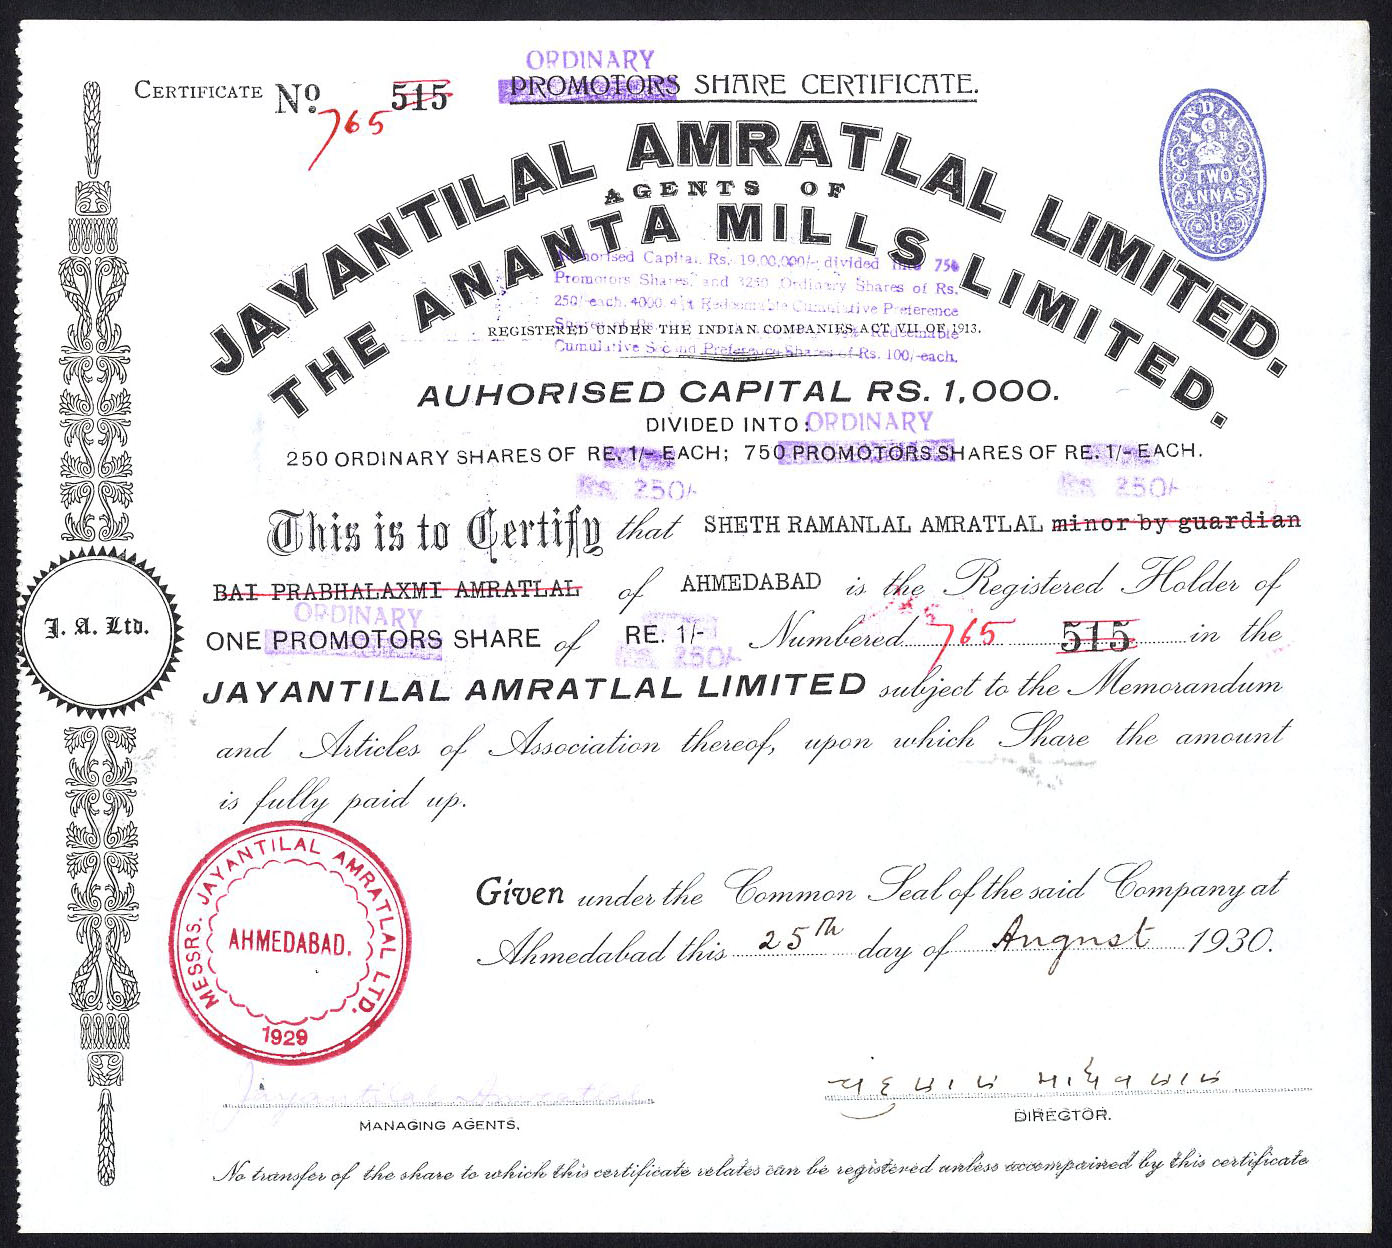 ORDINARY
CERTIFICATE No. 515 PROMOTORS SHARE CERTIFICATE.
765
INDIA
TWO
ANNAS
JAYANTILAL AMRATLAL LIMITED.
AGENTS OF
THE ANANTA MILLS LIMITED.
Authorised Capital Rs. 19,00,000/- divided into 750
Promotors Shares, and 3250 Ordinary Shares of Rs.
250/-each. 4000 Redeemable Cumulative Preference
Redeemable
REGISTERED UNDER THE INDIAN COMPANIES ACT VII OF 1913.
Cumulative Second Preference Shares of Rs. 100/-each.
AUHORISED CAPITAL RS. 1,000.
DIVIDED INTO: ORDINARY
250 ORDINARY SHARES OF RE. 1/- EACH; 750 PROMOTORS SHARES OF RE. 1/- EACH.
Rs. 250/- Rs. 250/-
This is to Certify that SHETH RAMANLAL AMRATLAL minor by guardian
BAI PRABHALAXMI AMRATLAL of AHMEDABAD is the Registered Holder of
ORDINARY
ONE PROMOTORS SHARE of RE. 1/- Numbered 765 515 in the
Rs. 250/-
J. A. Ltd.
JAYANTILAL AMRATLAL LIMITED subject to the Memorandum
and Articles of Association thereof, upon which Share the amount
is fully paid up.
MESSRS. JAYANTILAL AMRATLAL LTD.
AHMEDABAD.
1929
Given under the Common Seal of the said Company at
Ahmedabad this 25th day of August 1930.
Jayantilal Amratlal
MANAGING AGENTS.
DIRECTOR.
No transfer of the share to which this certificate relates can be registered unless accompained by this certificate